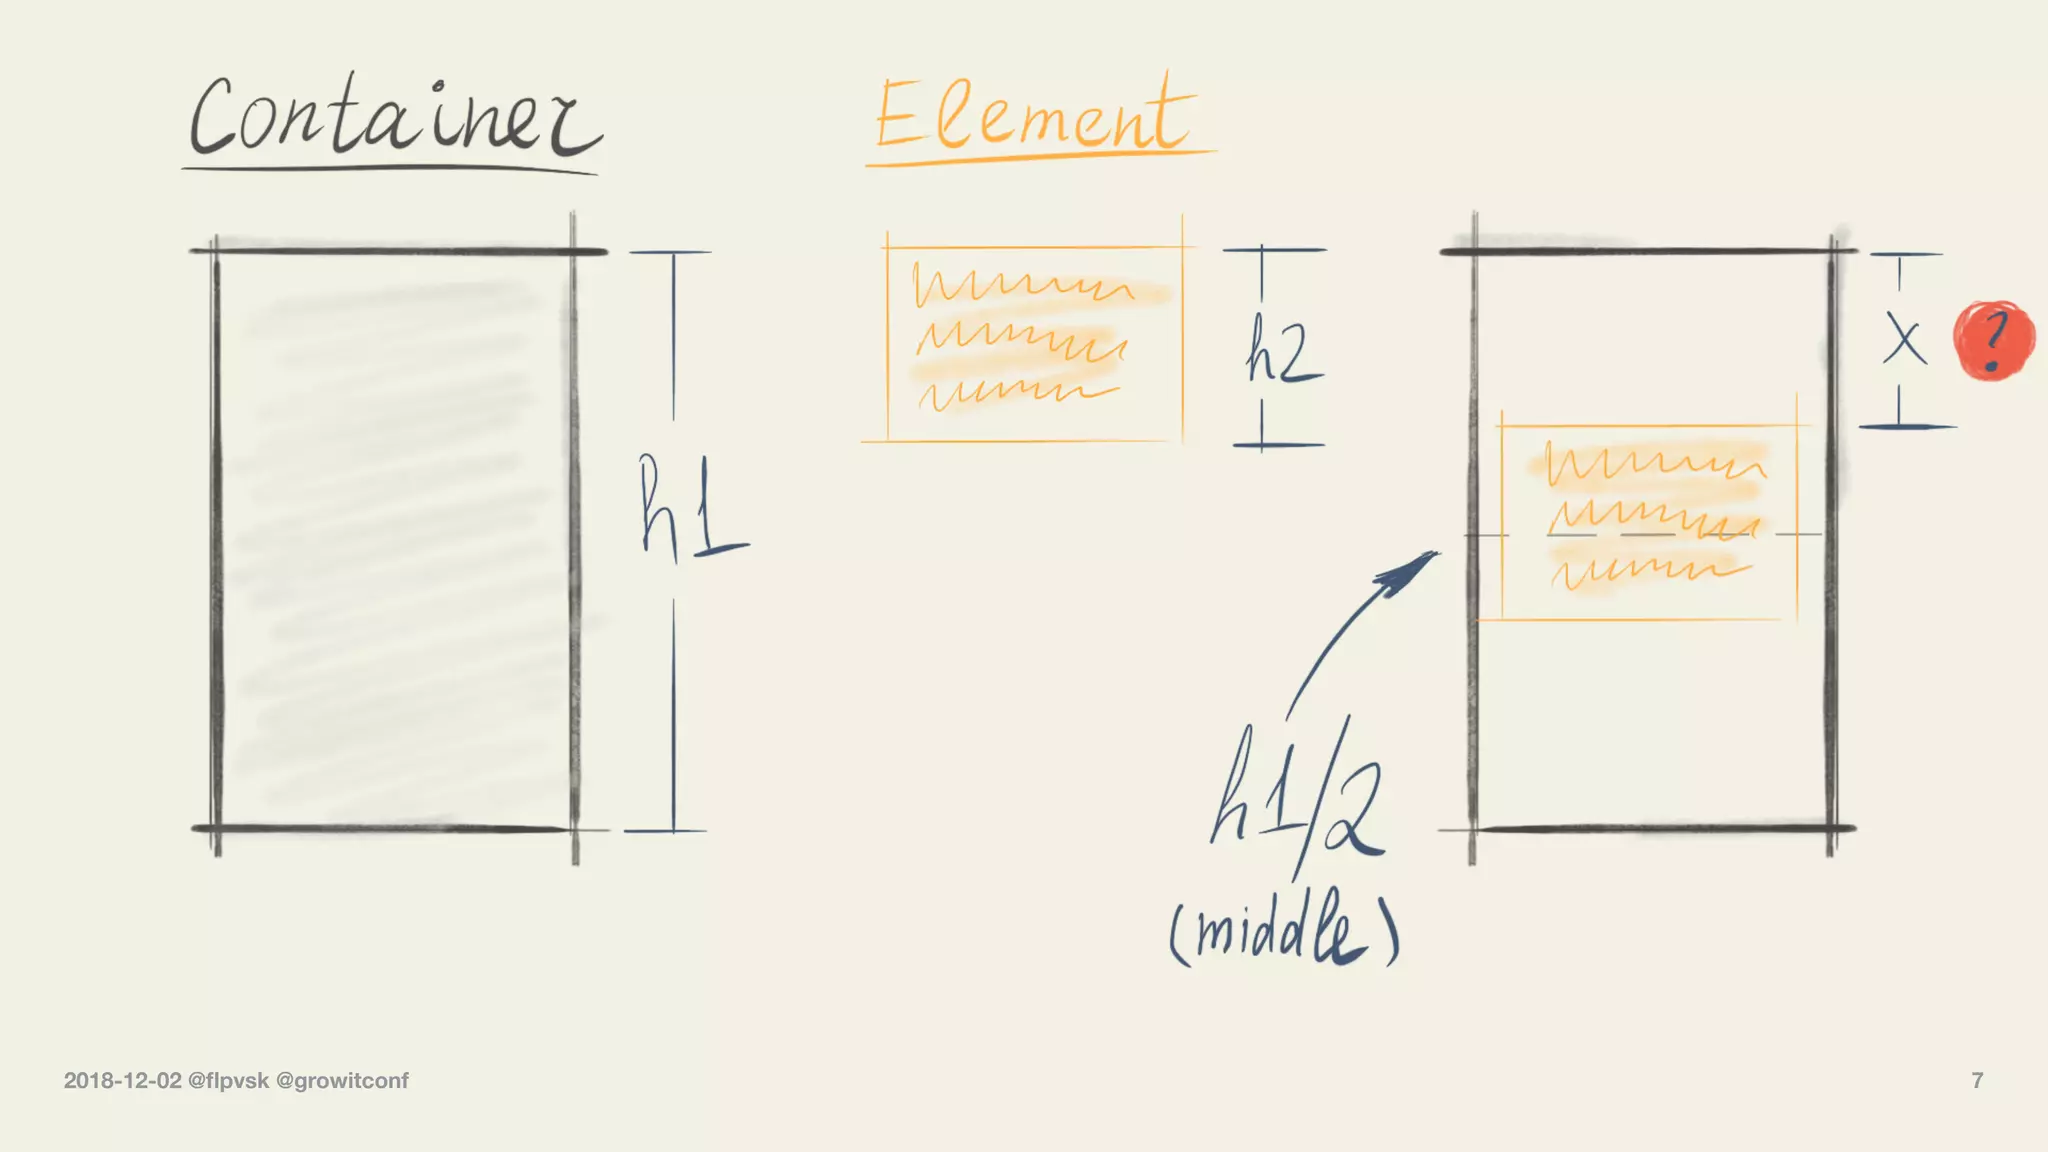 Container
Element
h1
h2
x ?
h1/2
(middle)
2018-12-02 @flpvsk @growitconf
7